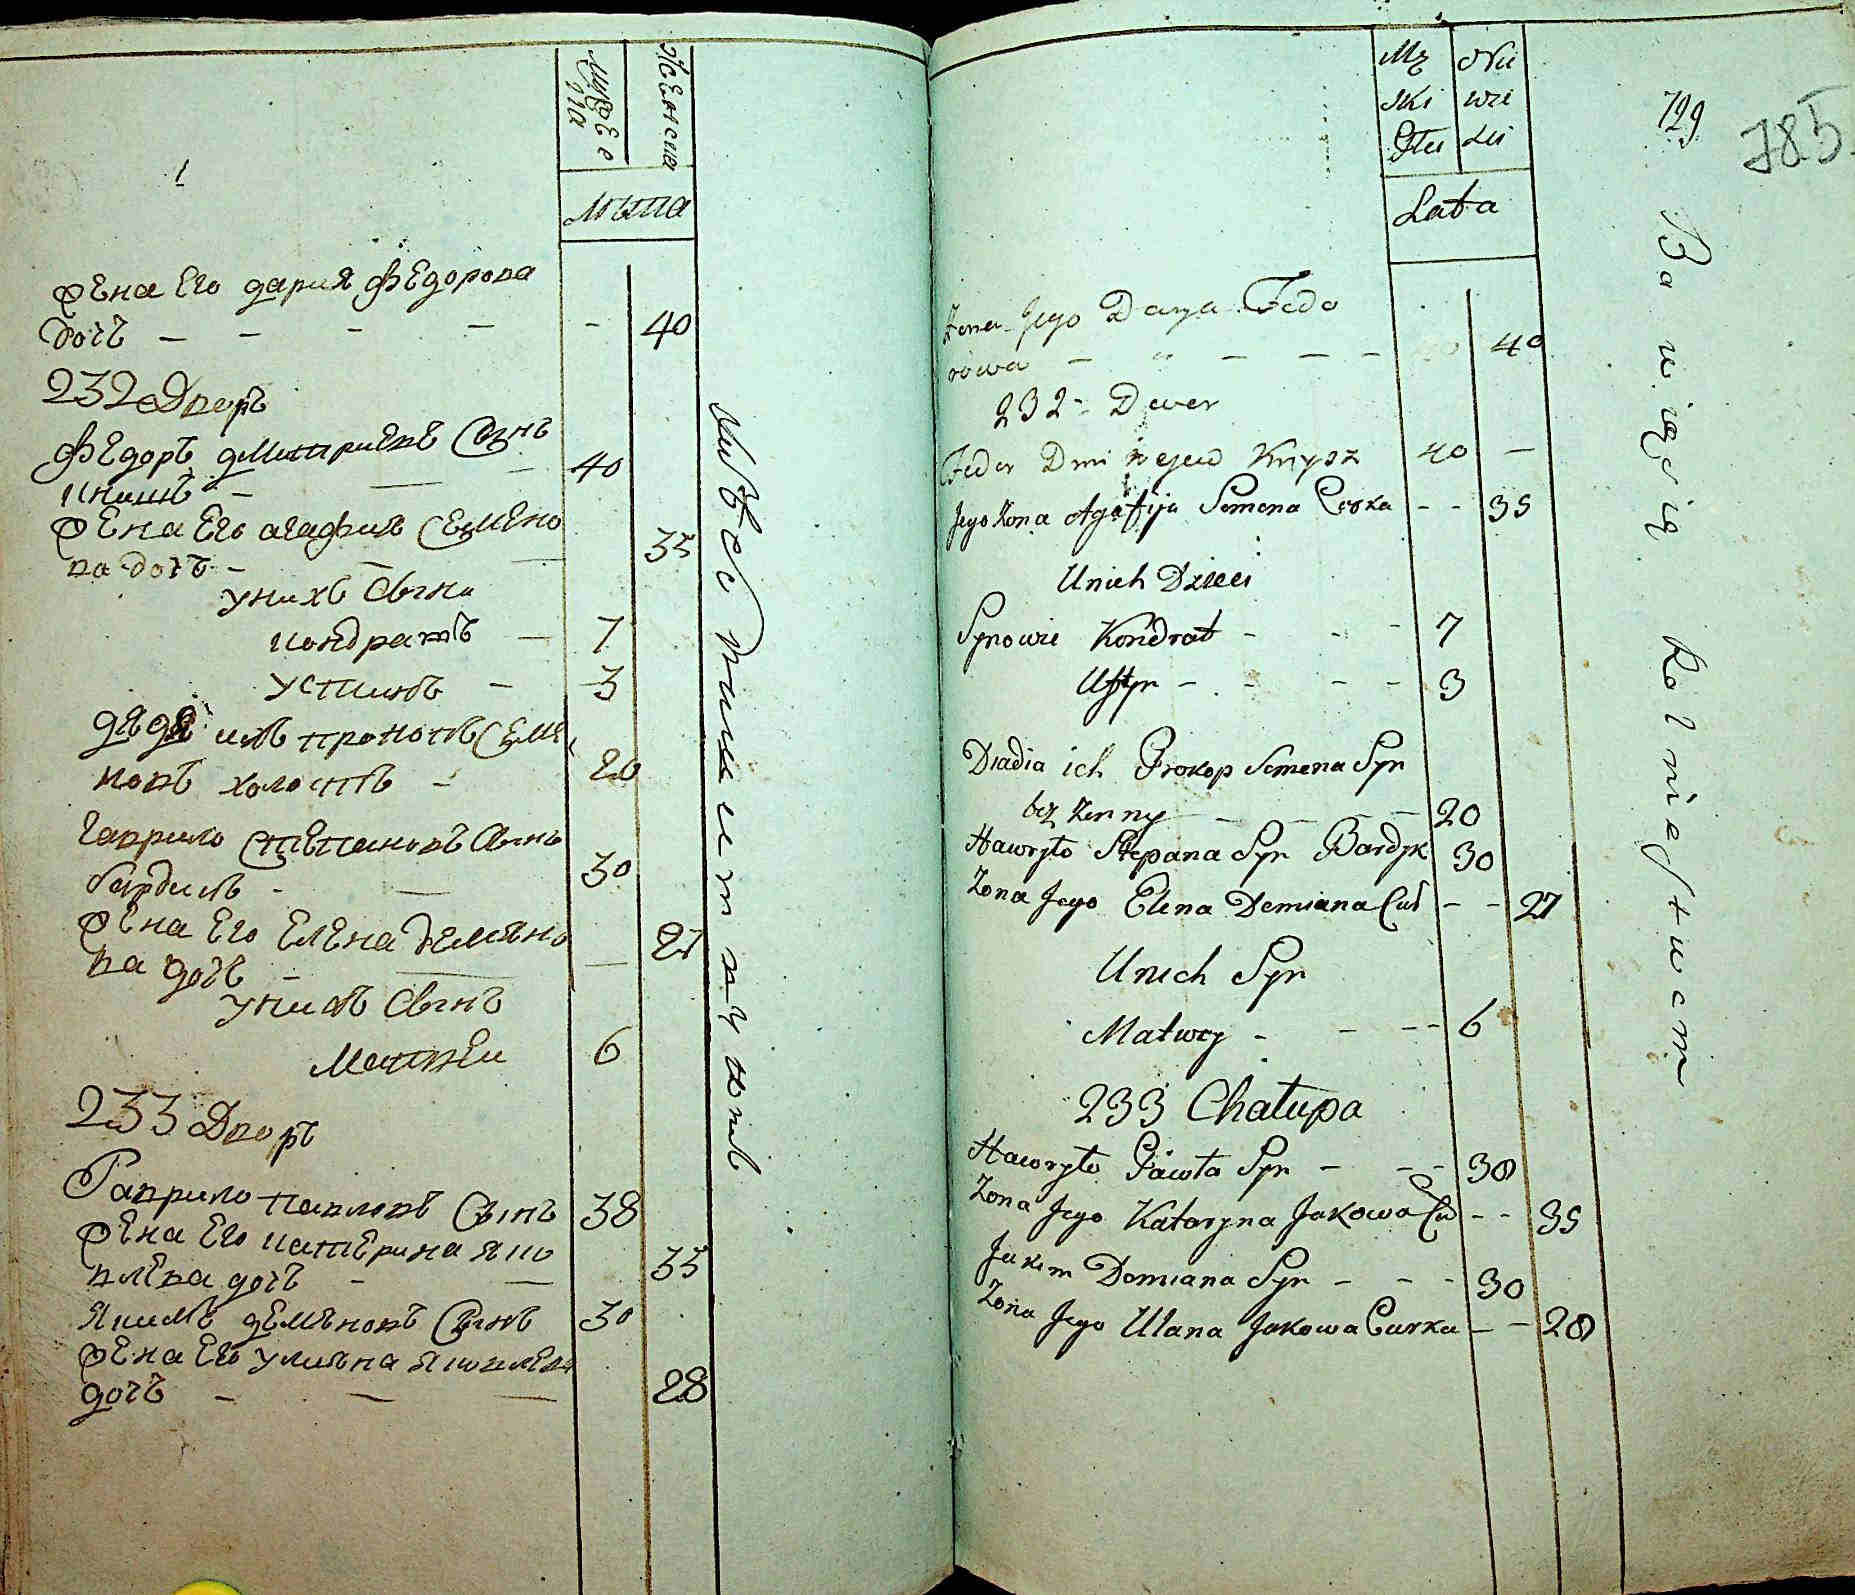 Мужеска
Женска
Лѣта
жена Его дария фЕдорова
дочь — — — — — 40
232 Дворъ
фЕдоръ дмитриЕвъ Сынъ
книшъ — — — 40
жЕна Его агафия СЕмЕно
ва дочь — — — 35
у нихъ Сыни
кондратъ — 7
устимъ — 3
дядя ихъ прокопъ СЕмЕ
новъ холостъ — 20
гаврило СтЕпановъ Сынъ
бардикъ — — 30
жЕна Его ЕлЕна дЕмяно
ва дочь — — — 27
у нихъ Сынъ
МатвЕи 6
233 Дворъ
Гаврило павловъ Сынъ 38
жЕна Его катЕрина яко
влЕва дочь — — 35
якимъ дЕмяновъ Сынъ 30
жЕна Его уляна яковлЕва
дочь — — — 28
729
785
Mę Nie
ski wie
Płci ści
Lata
Żona Jego Darya Fedo
rowa — — — — 40
232 - Dwor
Fedor Dmitrejew Knysz 40 —
Jego Żona Agafija Semena Corka - - 35
U nich Dzieci
Synowie Kondrat - - - 7
Ustyn - - - - 3
Dziadia ich Prokop Semena Syn
bez Zenny — — — — 20
Hawryło Stepana Syn Bardyk 30
Zona Jego Elena Demiana Cur - - 27
U nich Syn
Matwey - - - - 6
233 Chałupa
Hawryło Pawła Syn - - - 38
Zona Jego Kataryna Jakowa Cur - - 35
Jakim Demiana Syn - - - 30
Zona Jego Ulana Jakowa Curka - - 28
Bawią się Rolnictwem